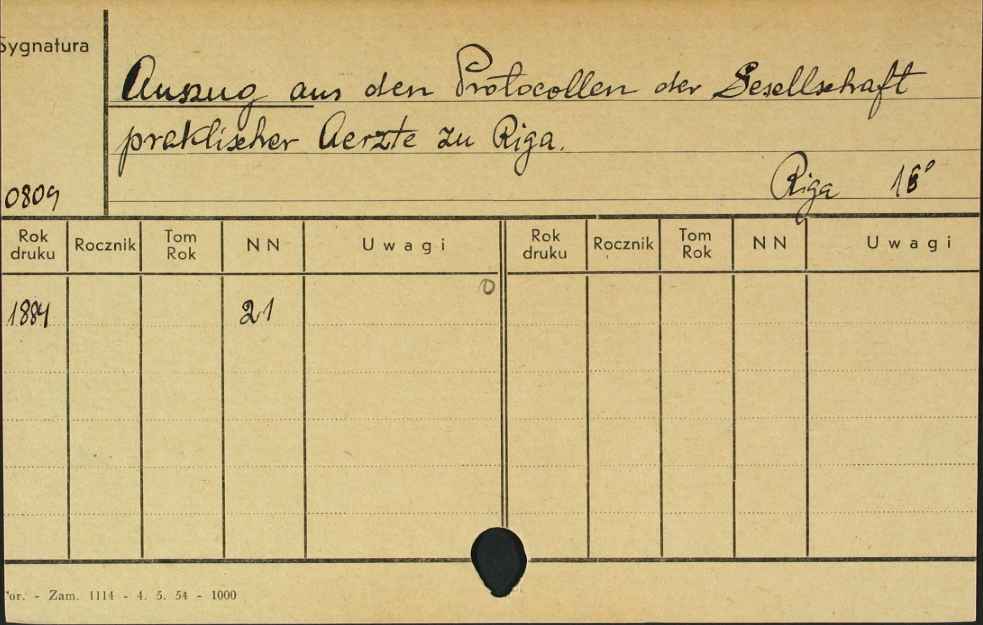 Sygnatura
Auszug aus den Protocollen der Gesellschaft
praktischer Aerzte zu Riga.
0809
Riga
Rok druku Rocznik Tom Rok NN Uwagi Rok druku Rocznik Tom Rok NN Uwagi
1884 21
- Zam. 1114 - 4. 5. 54 - 1000